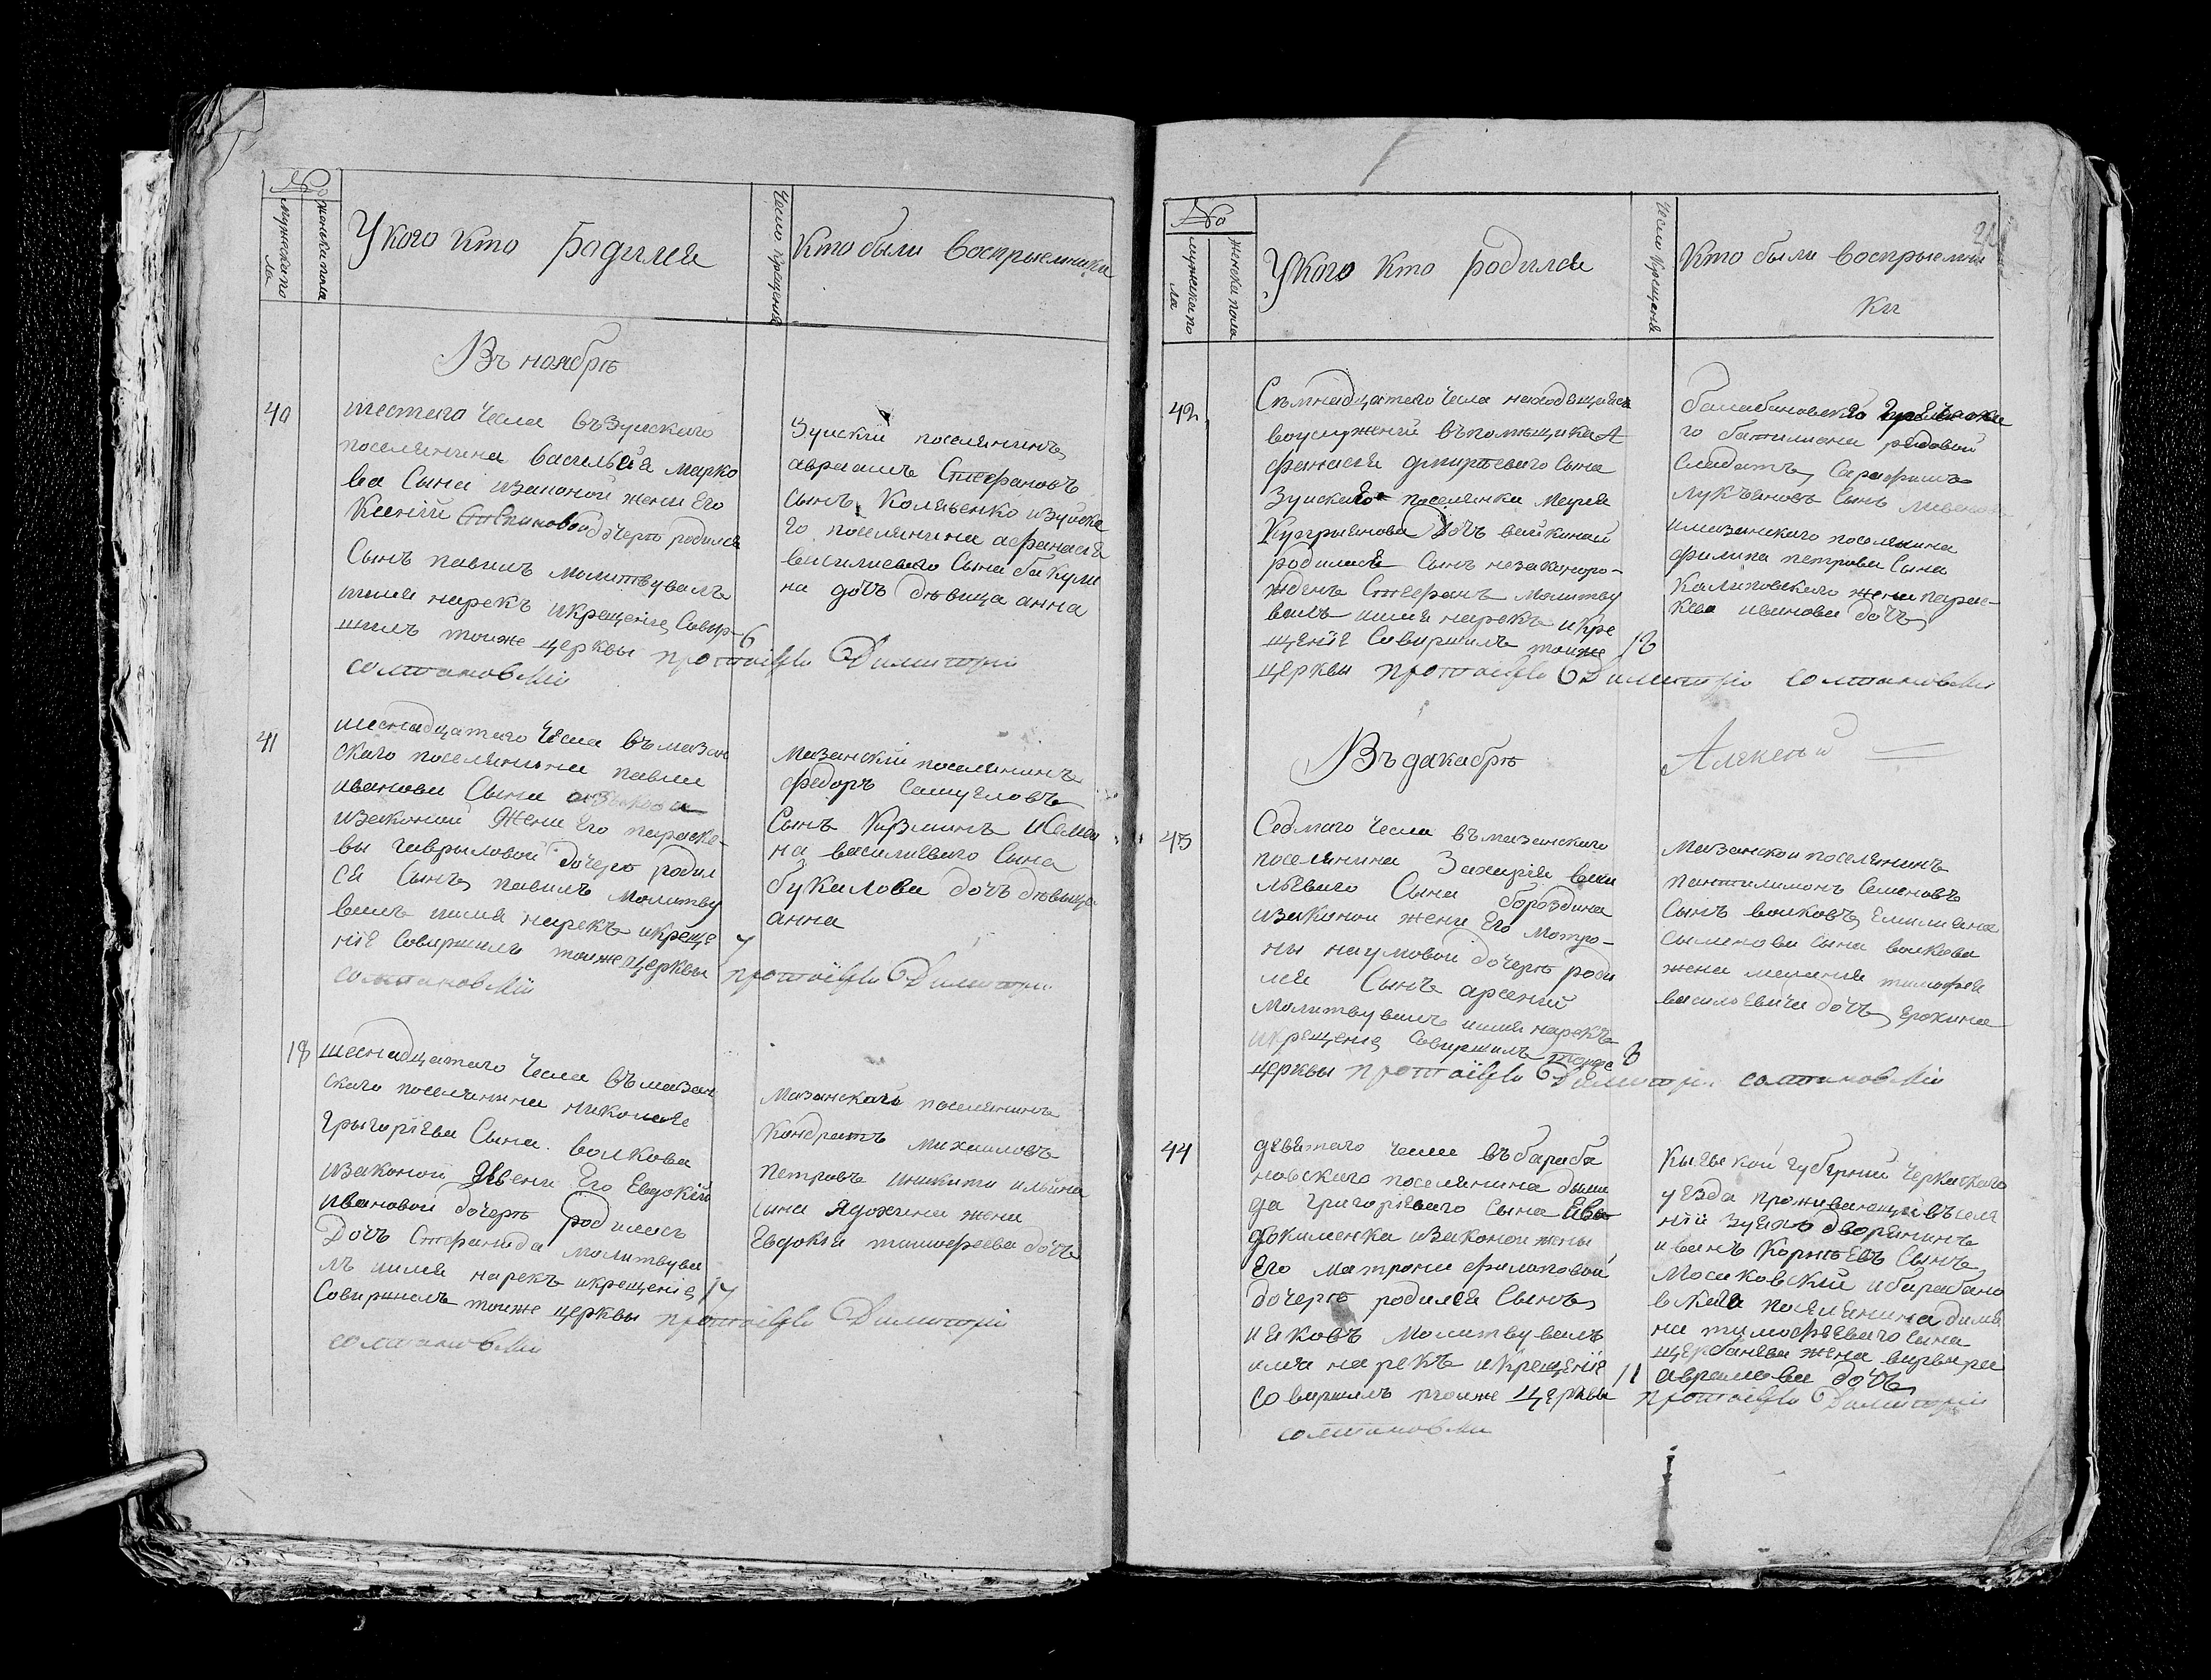 №
мужеска по
ла
женска пола
У кого кто Родился
Число крещения
Кто были восприемники
Въ ноябрѣ
40
шестаго Чесла въ Зуискаго
поселянина василья марко
ва Сына изаконой жени Его
Ксеніи дочерѣ родился
Сынъ павилъ молитву валъ
имия нарекъ икрещение Совир-
шилъ тоиже церквы протоіерей Димитрій
6
солтановскій
Зуискіи поселянинъ
авраамъ Стефановъ
сынъ Коляенко изуиска
го поселянина афанасія
василиеваго Сына бакули
на дочъ дѣвица анна
41
шеснадцатаго Чесла въ мазан
скаго поселянина павла
иванова Сына
изаконой жени Его параске-
вы гавриловой дочерѣ родил
ся Сынъ павилъ молитву
валъ имия нарекъ икреще
ніе совиршилъ тоиже церквы протоіерей Димитрій
7
солтановскій
мазанскіи поселянинъ
федоръ самуеловъ
Сынъ Кузминъ исеме
на василиеваго Сына
букалова дочъ дѣвица
анна
18
шеснадцатаго Чесла въ мазан
скаго поселянина николая
григоріева Сына волкова
изаконой жени Его Евдокіи
ивановой дочерѣ родилась
Дочъ Стефанида молитву ва
лъ имия нарекъ икрещение
17
Совиршилъ тоиже церквы протоіерей Димитрій
солтановскій
Мазанскаго поселянинъ
Кондратъ михаиловъ
Петровъ иникити ильина
сына Ядохина жена
Евдокія тимофеева дочъ
№
мужеска по
ла
женска пола
У кого кто родился
Число крещения
Кто были восприемни
ки
42
Съмнадцатаго Чесла находящияся
воуслуженіи въ помѣщика А
фанасія дмитріеваго Сына
Зуискаго поселянка Мария
Куприянова Дочъ
родился Сынъ незаконоро-
жденъ Стефанъ молитву
валъ имия нарекъ икре
щение Совиршилъ тоиже
18
церквы протоіерей Димитрій солтановскій
балабановскаго
го баталиона рядовой
Солдатъ Серафимъ
Лукъяновъ Сынъ
имазанскаго поселянина
филипа петрова Сына
Калиповскаго жена парас-
кева иванова дочъ
Въ декабрѣ
Алексѣй
43
Седмаго Чесла въ мазанскаго
поселянина Захарія васи
льеваго Сына бороздина
изаконой жени Его Матро-
ны наумовой дочерѣ роди
лся Сынъ арсений
Молитву валъ имия нарекъ
икрещение Совиршилъ тоиже
8
церквы протоіерей Димитрій солтановскій
Мазанской поселянинъ
пантилимонъ Семеновъ
Сынъ волковъ Емилиана
сименова сына волкова
жена меланія тимофея
василъевича дочъ Ерохина
44
девятаго Чесла въ бараба
новскаго поселянина дыми
да григоріеваго Сына Ев
докименка изаконой жены
Его матроны филиповой
дочерѣ родился Сынъ
ияковъ Молитву валъ
имия нарекъ икрещеніе
11
Совиршилъ тоиже Церквы протоіерей Димитрій
солтановскій
Кыевской губерніи Черкаскаго
уезда проживающий въ селе
ніи Зуехъ дворянинъ
иванъ Корнѣевъ Сынъ
Мосаковскій ибарабано
вскаго поселянина дими
на тимофѣеваго Сына
щербанева жена варвара
аврамова дочъ